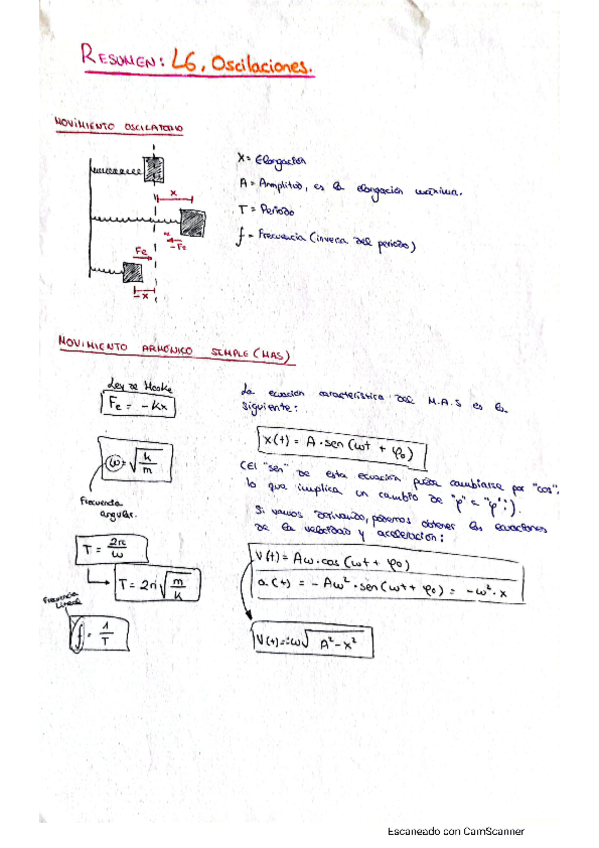 RESUMEN: L6, Oscilaciones.
MOVIMIENTO OSCILATORIO
X = Elongación
A = Amplitud, es la elongación máxima.
T = Periodo
f = Frecuencia (inversa del periodo)
x
-Fe
Fe
-x
MOVIMIENTO ARMÓNICO SIMPLE (MAS)
Ley de Hooke
Fe = -Kx
ω = √(k/m)
Frecuencia
angular.
T = 2π/ω
T = 2π √(m/k)
Frecuencia
Lineal
f = 1/T
La ecuación característica del M.A.S es la
siguiente:
x(t) = A · sen (ωt + φ₀)
(El "sen" de esta ecuación puede cambiarse por "cos",
lo que implica un cambio de "φ" a "φ'").
Si vamos derivando, podemos obtener las ecuaciones
de la velocidad y aceleración:
V(t) = Aω · cos (ωt + φ₀)
a(t) = - Aω² · sen (ωt + φ₀) = -ω² · x
V(t) = ω √(A² - x²)
Escaneado con CamScanner